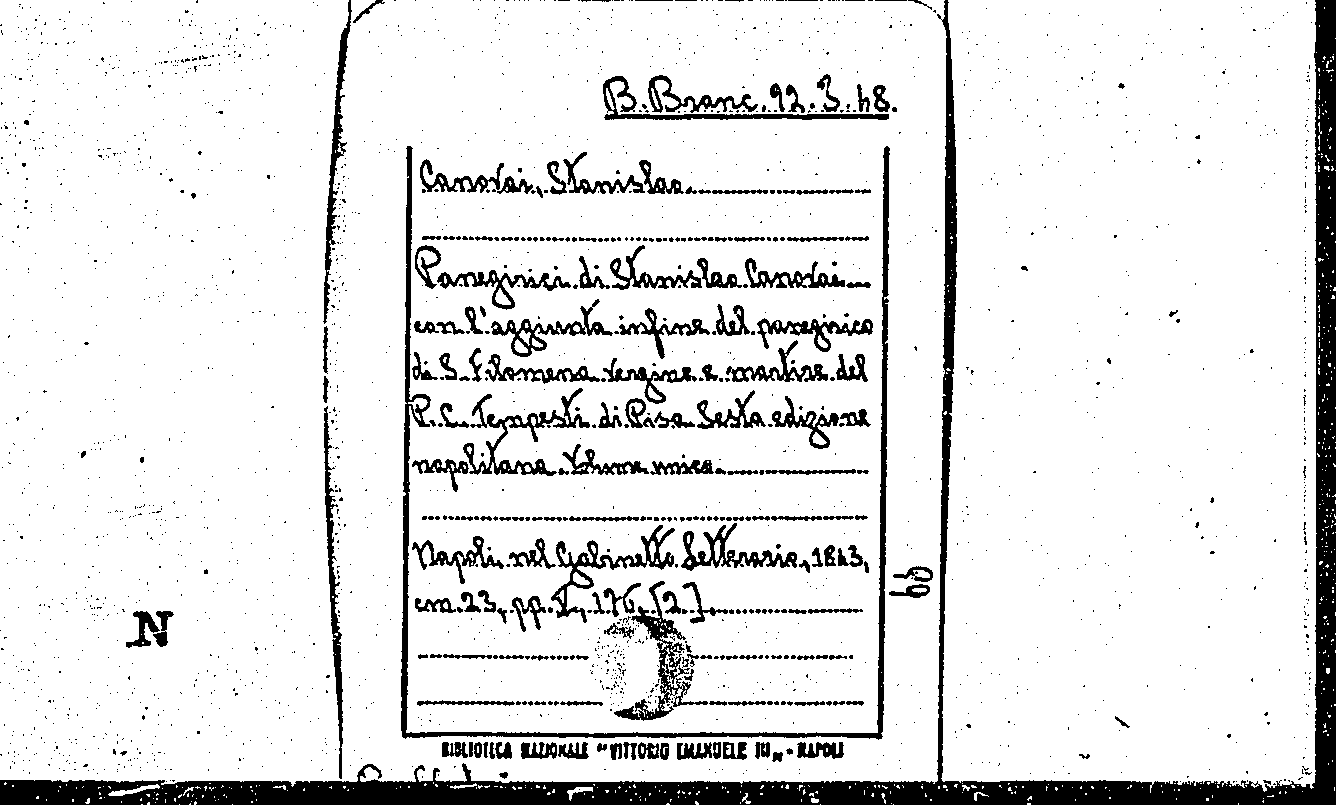 B. Branc. 92. 3. 48.
Canovai, Stanislao
Panegirici di Stanislao Canovai
con l'aggiunta infine del panegirico
di S. Filomena vergine e martire del
P. C. Tempesti di Pisa Sesta edizione
napolitana. Volume unico.
Napoli, nel Gabinetto Letterario, 1843,
cm. 23, pp. V, 176, [2].
66
N
BIBLIOTECA NAZIONALE "VITTORIO EMANUELE III" - NAPOLI